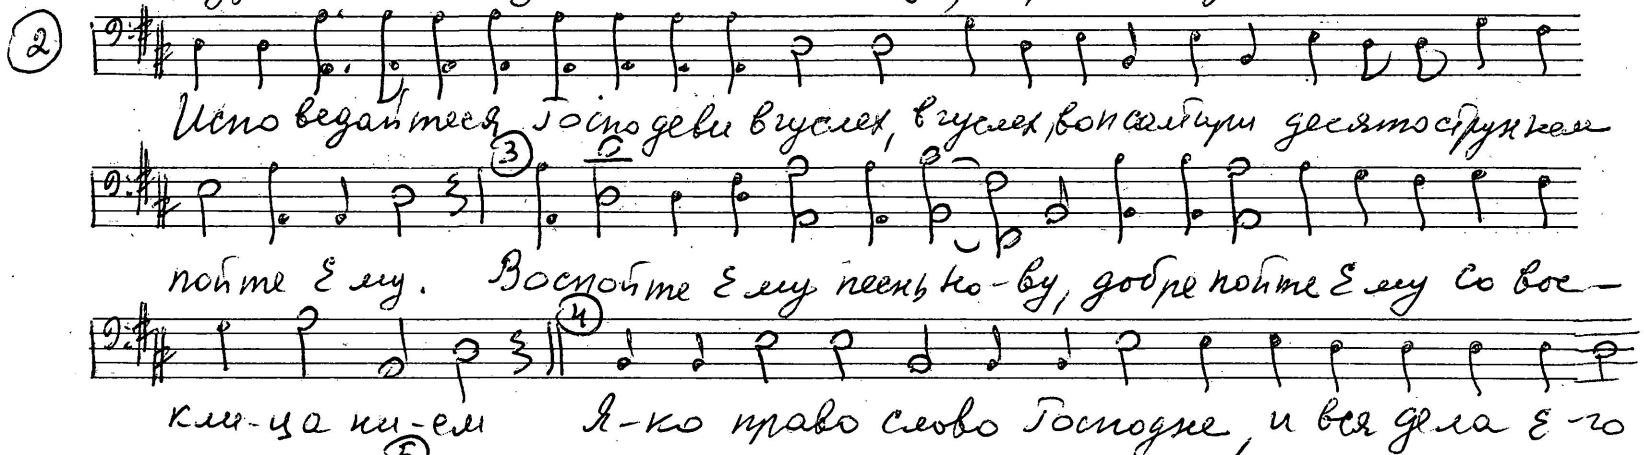 2
Исповедайтеся Господеви в гуслех, в гуслех, во псалтири десятострунном
3
пойте Ему. Воспойте Ему песнь но-ву, добре пойте Ему со вос-
4
кли-ца ни-ем Я-ко право слово Господне, и вся дела Е-го
5